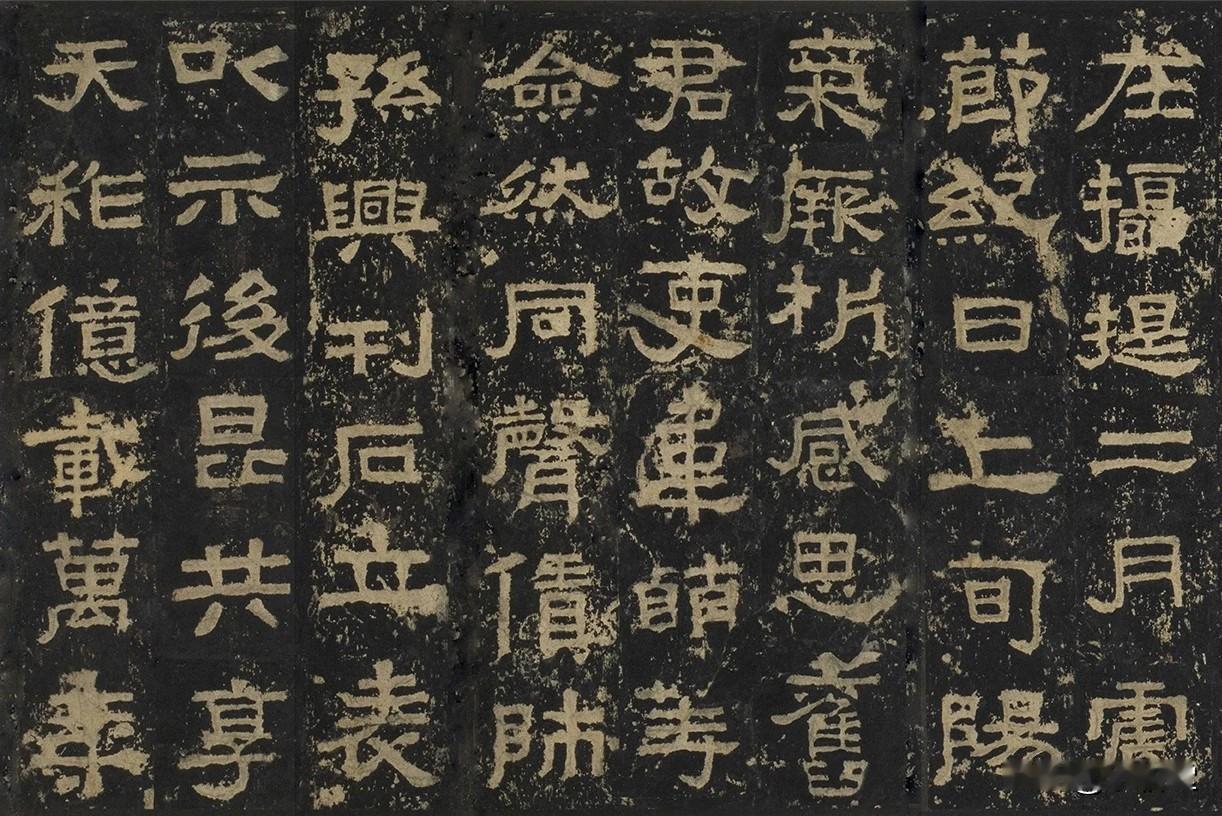 在攝提二月震
節紀日上旬陽
氣厥析感思舊
君故吏韋萌等
僉然同聲賃師
孫興刊石立表
㕥示後昆共享
天祚億載萬年